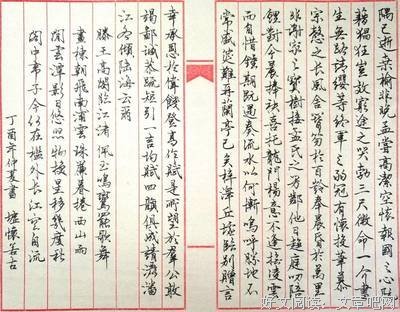 隅已逝桑榆非晚孟嘗高潔空懷報國之心阮
藉猖狂豈效窮途之哭勃三尺微命一介書
生無路請纓等終軍之弱冠有懷投筆慕
宗慤之長風舍簪笏於百齡奉晨昏於萬里
非謝家之寶樹接孟氏之芳鄰他日趨庭叨陪
鯉對今晨捧袂喜托龍門楊意不逢撫凌雲
而自惜鍾期既遇奏流水以何慚嗚呼勝地不
常盛筵難再蘭亭已矣梓澤丘墟臨別贈言
幸承恩於偉餞登高作賦是所望於群公敢
竭鄙誠恭疏短引一言均賦四韻俱成請灑潘
江各傾陸海云爾
滕王高閣臨江渚佩玉鳴鸞罷歌舞
畫棟朝飛南浦雲珠簾暮捲西山雨
閒雲潭影日悠悠物換星移幾度秋
閣中帝子今何在檻外長江空自流
丁酉年仲夏書
好文阅读：文章吧网